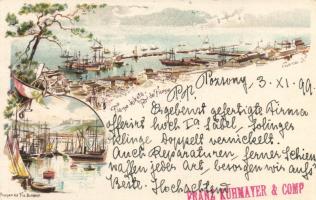 Pozsony 3. XI. 99.
Ergebenst gefertigte Firma
offerirt hoch Ia Säbel, Solinger
Klinge doppelt vernickelt.
Auch Reparaturen ferner Schien
Waffen jeder Art, besorgen wir aufs
Beste. Hochachtend
FRANZ KUHMAYER & COMP